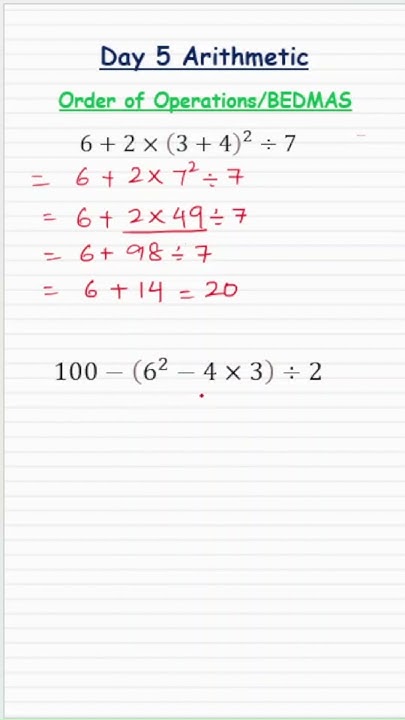 Day 5 Arithmetic
Order of Operations/BEDMAS
6 + 2 × (3 + 4)² ÷ 7
= 6 + 2 × 7² ÷ 7
= 6 + 2 × 49 ÷ 7
= 6 + 98 ÷ 7
= 6 + 14 = 20
100 − (6² − 4 × 3) ÷ 2